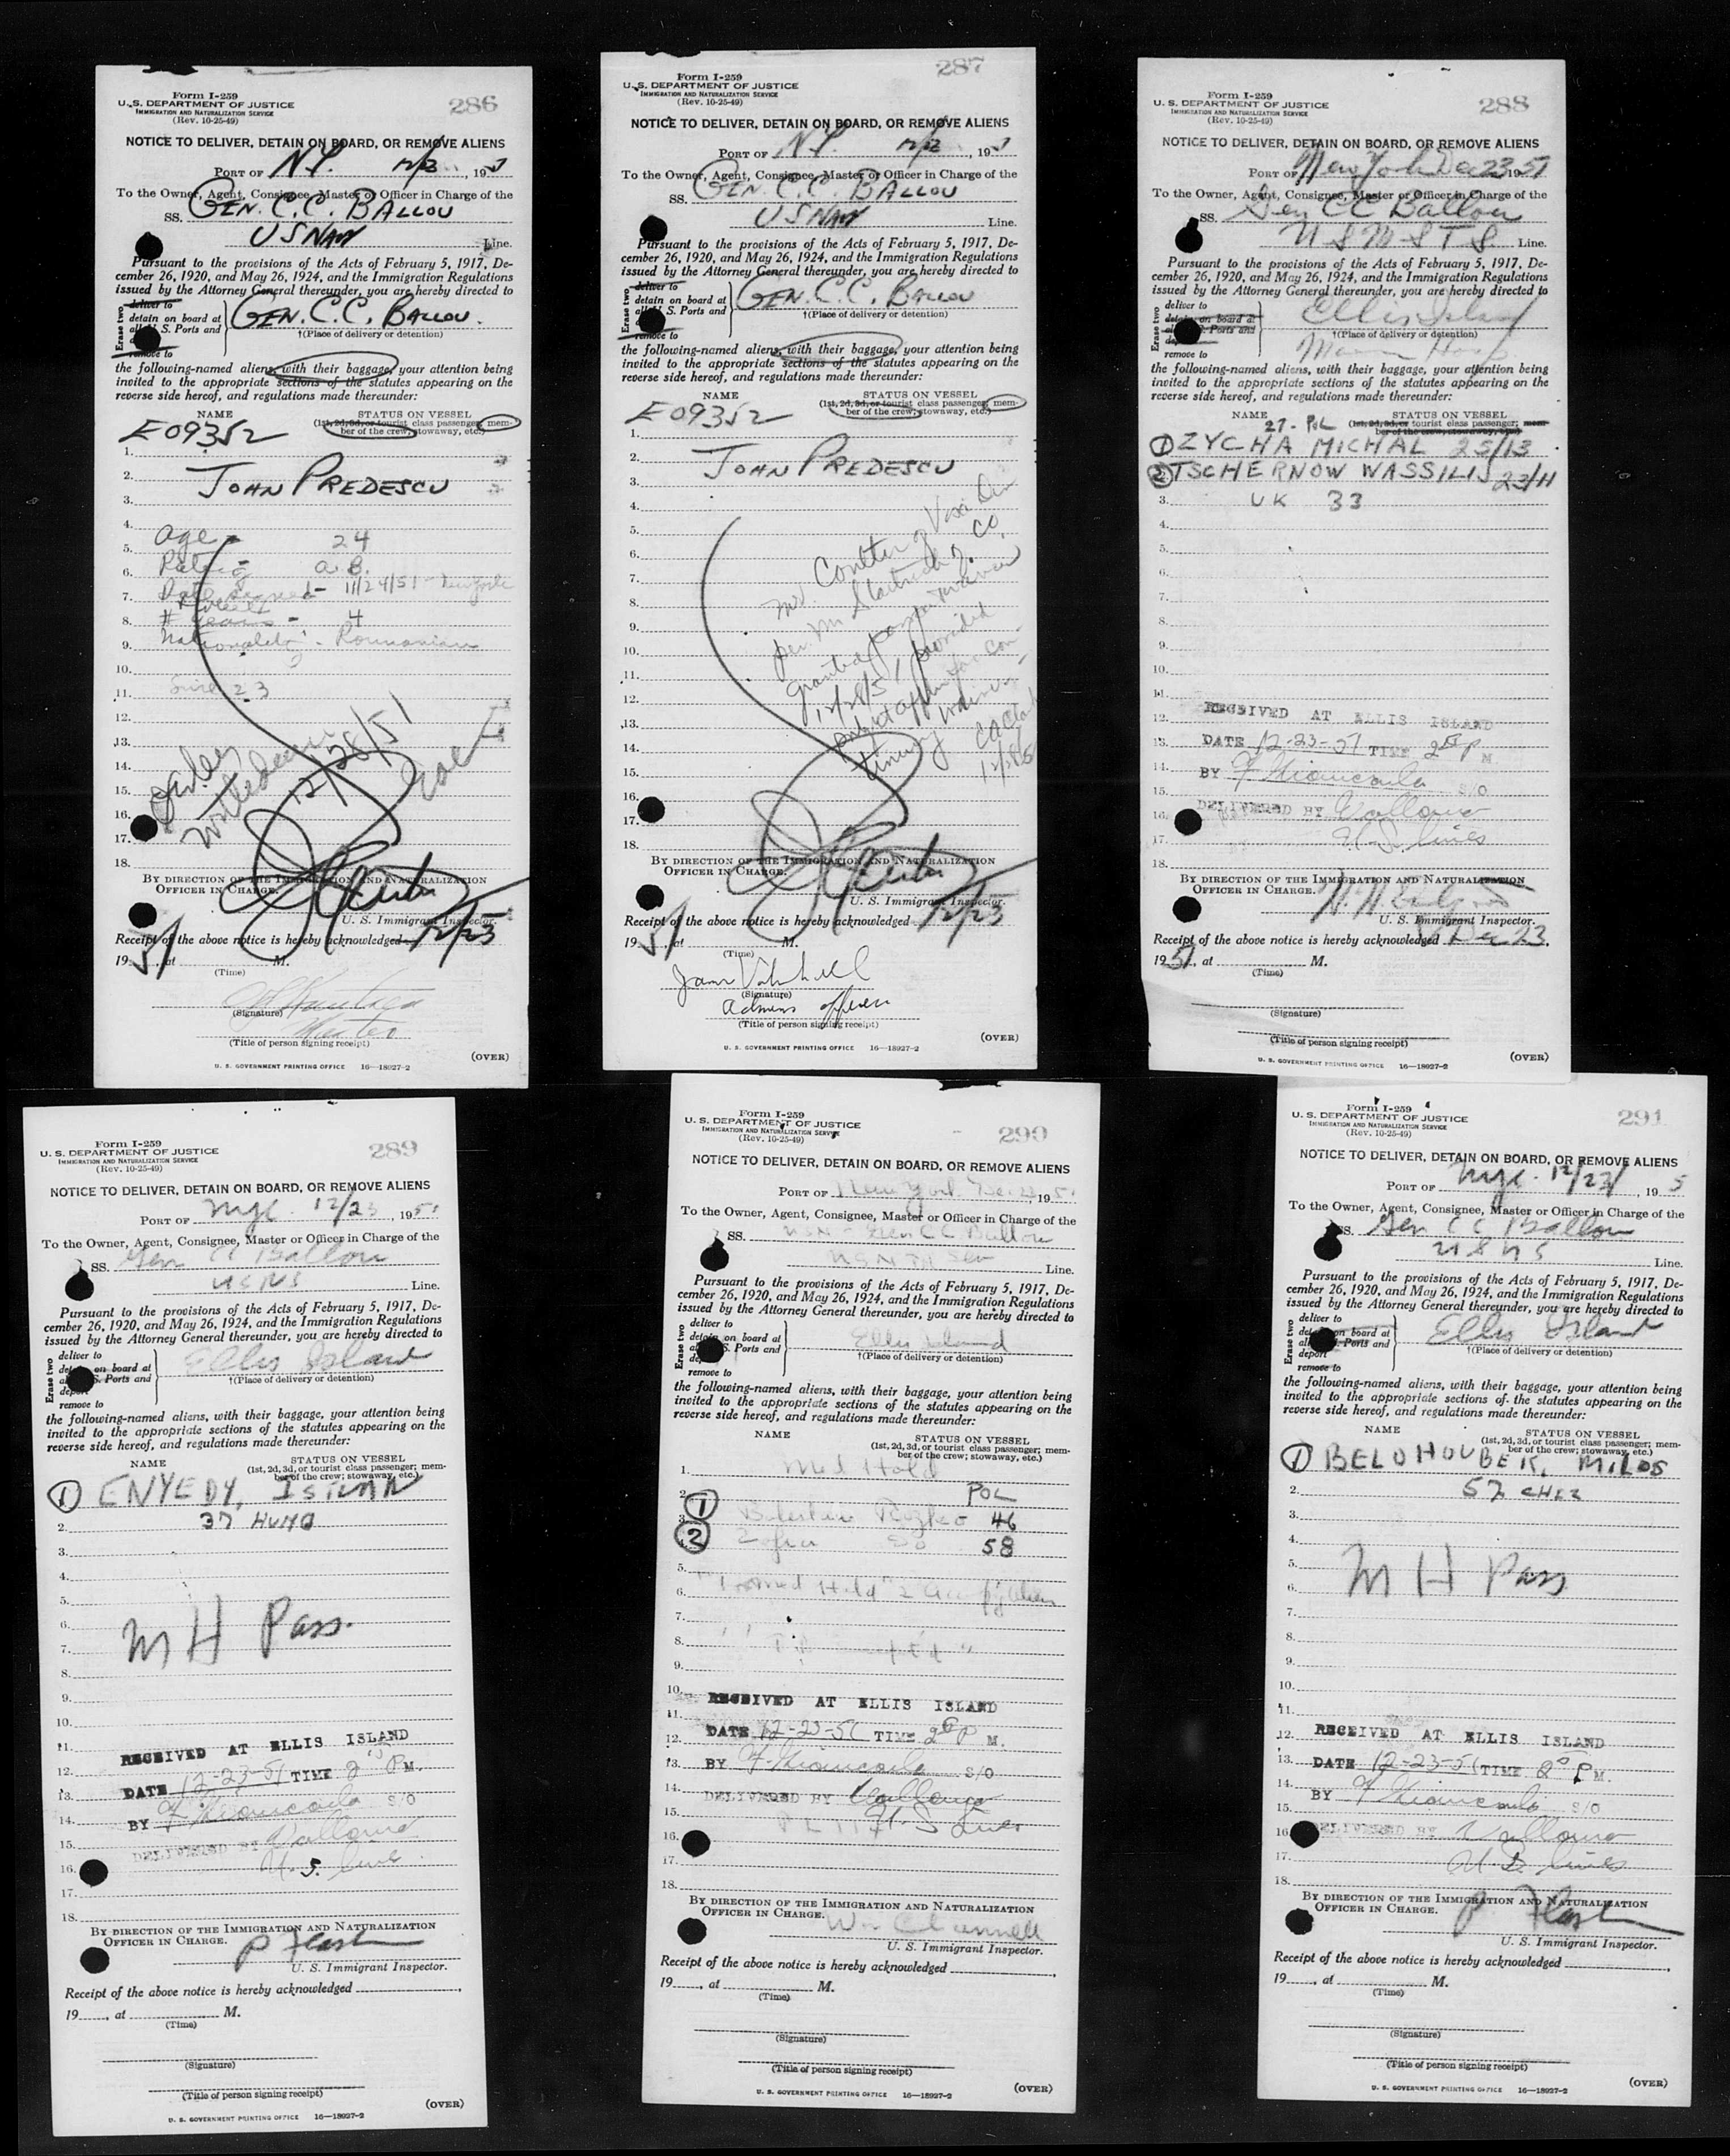 286
Form I-259
U. S. DEPARTMENT OF JUSTICE
IMMIGRATION AND NATURALIZATION SERVICE
(Rev. 10-25-49)
NOTICE TO DELIVER, DETAIN ON BOARD, OR REMOVE ALIENS
PORT OF N.Y. , 19
To the Owner, Agent, Consignee, Master or Officer in Charge of the
SS. GEN. C.C. BALLOU
US NAVY Line.
Pursuant to the provisions of the Acts of February 5, 1917, De-
cember 26, 1920, and May 26, 1924, and the Immigration Regulations
issued by the Attorney General thereunder, you are hereby directed to
Erase two
deliver to
detain on board at
all U. S. Ports and
remove to
GEN. C.C. BALLOU.
†(Place of delivery or detention)
the following-named aliens, with their baggage, your attention being
invited to the appropriate sections of the statutes appearing on the
reverse side hereof, and regulations made thereunder:
NAME STATUS ON VESSEL
(1st, 2d, 3d, or tourist class passenger; mem-
ber of the crew; stowaway, etc.)
E09352
1.
2. JOHN PREDESCU
3.
4.
5. Age - 24
6. Rating - a.B.
7. Date signed - 11/24/51 - New York
8. # Years - 4
9. Nationality - Roumanian
10.
11. 23
12.
13.
14. 12/28/51
15.
16.
17.
18.
BY DIRECTION OF THE IMMIGRATION AND NATURALIZATION
OFFICER IN CHARGE.
U. S. Immigrant Inspector.
Receipt of the above notice is hereby acknowledged 12/23
1951, at M.
(Time)
(Signature)
Master
(Title of person signing receipt)
(OVER)
U. S. GOVERNMENT PRINTING OFFICE 16—18927-2
287
Form I-259
U. S. DEPARTMENT OF JUSTICE
IMMIGRATION AND NATURALIZATION SERVICE
(Rev. 10-25-49)
NOTICE TO DELIVER, DETAIN ON BOARD, OR REMOVE ALIENS
PORT OF N.Y. , 19
To the Owner, Agent, Consignee, Master or Officer in Charge of the
SS. GEN. C.C. BALLOU
US NAVY Line.
Pursuant to the provisions of the Acts of February 5, 1917, De-
cember 26, 1920, and May 26, 1924, and the Immigration Regulations
issued by the Attorney General thereunder, you are hereby directed to
Erase two
deliver to
detain on board at
all U. S. Ports and
remove to
GEN. C.C. BALLOU
†(Place of delivery or detention)
the following-named aliens, with their baggage, your attention being
invited to the appropriate sections of the statutes appearing on the
reverse side hereof, and regulations made thereunder:
NAME STATUS ON VESSEL
(1st, 2d, 3d, or tourist class passenger; mem-
ber of the crew; stowaway, etc.)
E09352
1.
2. JOHN PREDESCU
3.
4.
5.
6.
7.
8.
9.
10.
11.
12.
13.
14.
15.
16.
17.
18.
granted
12/28/51 provided
BY DIRECTION OF THE IMMIGRATION AND NATURALIZATION
OFFICER IN CHARGE.
U. S. Immigrant Inspector.
Receipt of the above notice is hereby acknowledged 12/23
1951, at M.
(Time)
(Signature)
Admins officer
(Title of person signing receipt)
(OVER)
U. S. GOVERNMENT PRINTING OFFICE 16—18927-2
288
Form I-259
U. S. DEPARTMENT OF JUSTICE
IMMIGRATION AND NATURALIZATION SERVICE
(Rev. 10-25-49)
NOTICE TO DELIVER, DETAIN ON BOARD, OR REMOVE ALIENS
PORT OF New York Dec 23 1951
To the Owner, Agent, Consignee, Master or Officer in Charge of the
SS. Gen CC Ballou
U S M S T S Line.
Pursuant to the provisions of the Acts of February 5, 1917, De-
cember 26, 1920, and May 26, 1924, and the Immigration Regulations
issued by the Attorney General thereunder, you are hereby directed to
Erase two
deliver to
detain on board at
all U. S. Ports and
remove to
Ellis Island
†(Place of delivery or detention)
the following-named aliens, with their baggage, your attention being
invited to the appropriate sections of the statutes appearing on the
reverse side hereof, and regulations made thereunder:
NAME STATUS ON VESSEL
27 - POL (1st, 2d, 3d, or tourist class passenger; mem-
ber of the crew; stowaway, etc.)
① ZYCHA MICHAL 25/13
② TSCHERNOW WASSILIJ 23/11
3. UK 33
4.
5.
6.
7.
8.
9.
10.
11.
12. RECEIVED AT ELLIS ISLAND
13. DATE 12-23-51 TIME 2 P M.
14. BY
15. S/O
16. DELIVERED BY
17. U.S. Lines
18.
BY DIRECTION OF THE IMMIGRATION AND NATURALIZATION
OFFICER IN CHARGE.
U. S. Immigrant Inspector.
Receipt of the above notice is hereby acknowledged Dec 23,
1951, at M.
(Time)
(Signature)
(Title of person signing receipt)
(OVER)
U. S. GOVERNMENT PRINTING OFFICE 16—18927-2
289
Form I-259
U. S. DEPARTMENT OF JUSTICE
IMMIGRATION AND NATURALIZATION SERVICE
(Rev. 10-25-49)
NOTICE TO DELIVER, DETAIN ON BOARD, OR REMOVE ALIENS
PORT OF NYC. 12/23, 1951
To the Owner, Agent, Consignee, Master or Officer in Charge of the
SS. Gen CC Ballou
USNS Line.
Pursuant to the provisions of the Acts of February 5, 1917, De-
cember 26, 1920, and May 26, 1924, and the Immigration Regulations
issued by the Attorney General thereunder, you are hereby directed to
Erase two
deliver to
detain on board at
all U. S. Ports and
deport
remove to
Ellis Island
†(Place of delivery or detention)
the following-named aliens, with their baggage, your attention being
invited to the appropriate sections of the statutes appearing on the
reverse side hereof, and regulations made thereunder:
NAME STATUS ON VESSEL
(1st, 2d, 3d, or tourist class passenger; mem-
ber of the crew; stowaway, etc.)
① ENYEDY, ISTVAN
2. 37 HUNG
3.
4.
5.
6. M H Pass.
7.
8.
9.
10.
11. RECEIVED AT ELLIS ISLAND
12. DATE 12-23-51 TIME 2 PM.
13. BY S/O
14.
15. DELIVERED BY
16. U. S. Lines
17.
18.
BY DIRECTION OF THE IMMIGRATION AND NATURALIZATION
OFFICER IN CHARGE.
U. S. Immigrant Inspector.
Receipt of the above notice is hereby acknowledged ,
19 , at M.
(Time)
(Signature)
(Title of person signing receipt)
(OVER)
U. S. GOVERNMENT PRINTING OFFICE 16—18927-2
290
Form I-259
U. S. DEPARTMENT OF JUSTICE
IMMIGRATION AND NATURALIZATION SERVICE
(Rev. 10-25-49)
NOTICE TO DELIVER, DETAIN ON BOARD, OR REMOVE ALIENS
PORT OF New York Dec. 23 1951
To the Owner, Agent, Consignee, Master or Officer in Charge of the
SS. USN - Gen CC Ballou
Line.
Pursuant to the provisions of the Acts of February 5, 1917, De-
cember 26, 1920, and May 26, 1924, and the Immigration Regulations
issued by the Attorney General thereunder, you are hereby directed to
Erase two
deliver to
detain on board at
all U. S. Ports and
deport
remove to
Ellis Island
†(Place of delivery or detention)
the following-named aliens, with their baggage, your attention being
invited to the appropriate sections of the statutes appearing on the
reverse side hereof, and regulations made thereunder:
NAME STATUS ON VESSEL
(1st, 2d, 3d, or tourist class passenger; mem-
ber of the crew; stowaway, etc.)
1. Med Hold
2. POL
① 46
② Zofia Do 58
5.
6.
7.
8.
9.
10. RECEIVED AT ELLIS ISLAND
11.
12. DATE 12-23-51 TIME 2 P M.
13. BY S/O
14. DELIVERED BY
15. U. S. Lines
16.
17.
18.
BY DIRECTION OF THE IMMIGRATION AND NATURALIZATION
OFFICER IN CHARGE.
U. S. Immigrant Inspector.
Receipt of the above notice is hereby acknowledged ,
19 , at M.
(Time)
(Signature)
(Title of person signing receipt)
(OVER)
U. S. GOVERNMENT PRINTING OFFICE 16—18927-2
291
Form I-259
U. S. DEPARTMENT OF JUSTICE
IMMIGRATION AND NATURALIZATION SERVICE
(Rev. 10-25-49)
NOTICE TO DELIVER, DETAIN ON BOARD, OR REMOVE ALIENS
PORT OF NYC. 12/23/ , 195
To the Owner, Agent, Consignee, Master or Officer in Charge of the
SS. Gen CC Ballou
USNS Line.
Pursuant to the provisions of the Acts of February 5, 1917, De-
cember 26, 1920, and May 26, 1924, and the Immigration Regulations
issued by the Attorney General thereunder, you are hereby directed to
Erase two
deliver to
detain on board at
all U. S. Ports and
deport
remove to
Ellis Island
†(Place of delivery or detention)
the following-named aliens, with their baggage, your attention being
invited to the appropriate sections of the statutes appearing on the
reverse side hereof, and regulations made thereunder:
NAME STATUS ON VESSEL
(1st, 2d, 3d, or tourist class passenger; mem-
ber of the crew; stowaway, etc.)
① BELOHOUBEK, MILOS
2. 57 CHEZ
3.
4.
5. M H Pass
6.
7.
8.
9.
10.
11.
12. RECEIVED AT ELLIS ISLAND
13. DATE 12-23-51 TIME 2 P M.
14. BY S/O
15.
16. DELIVERED BY
17. U.S. Lines
18.
BY DIRECTION OF THE IMMIGRATION AND NATURALIZATION
OFFICER IN CHARGE.
U. S. Immigrant Inspector.
Receipt of the above notice is hereby acknowledged ,
19 , at M.
(Time)
(Signature)
(Title of person signing receipt)
(OVER)
U. S. GOVERNMENT PRINTING OFFICE 16—18927-2